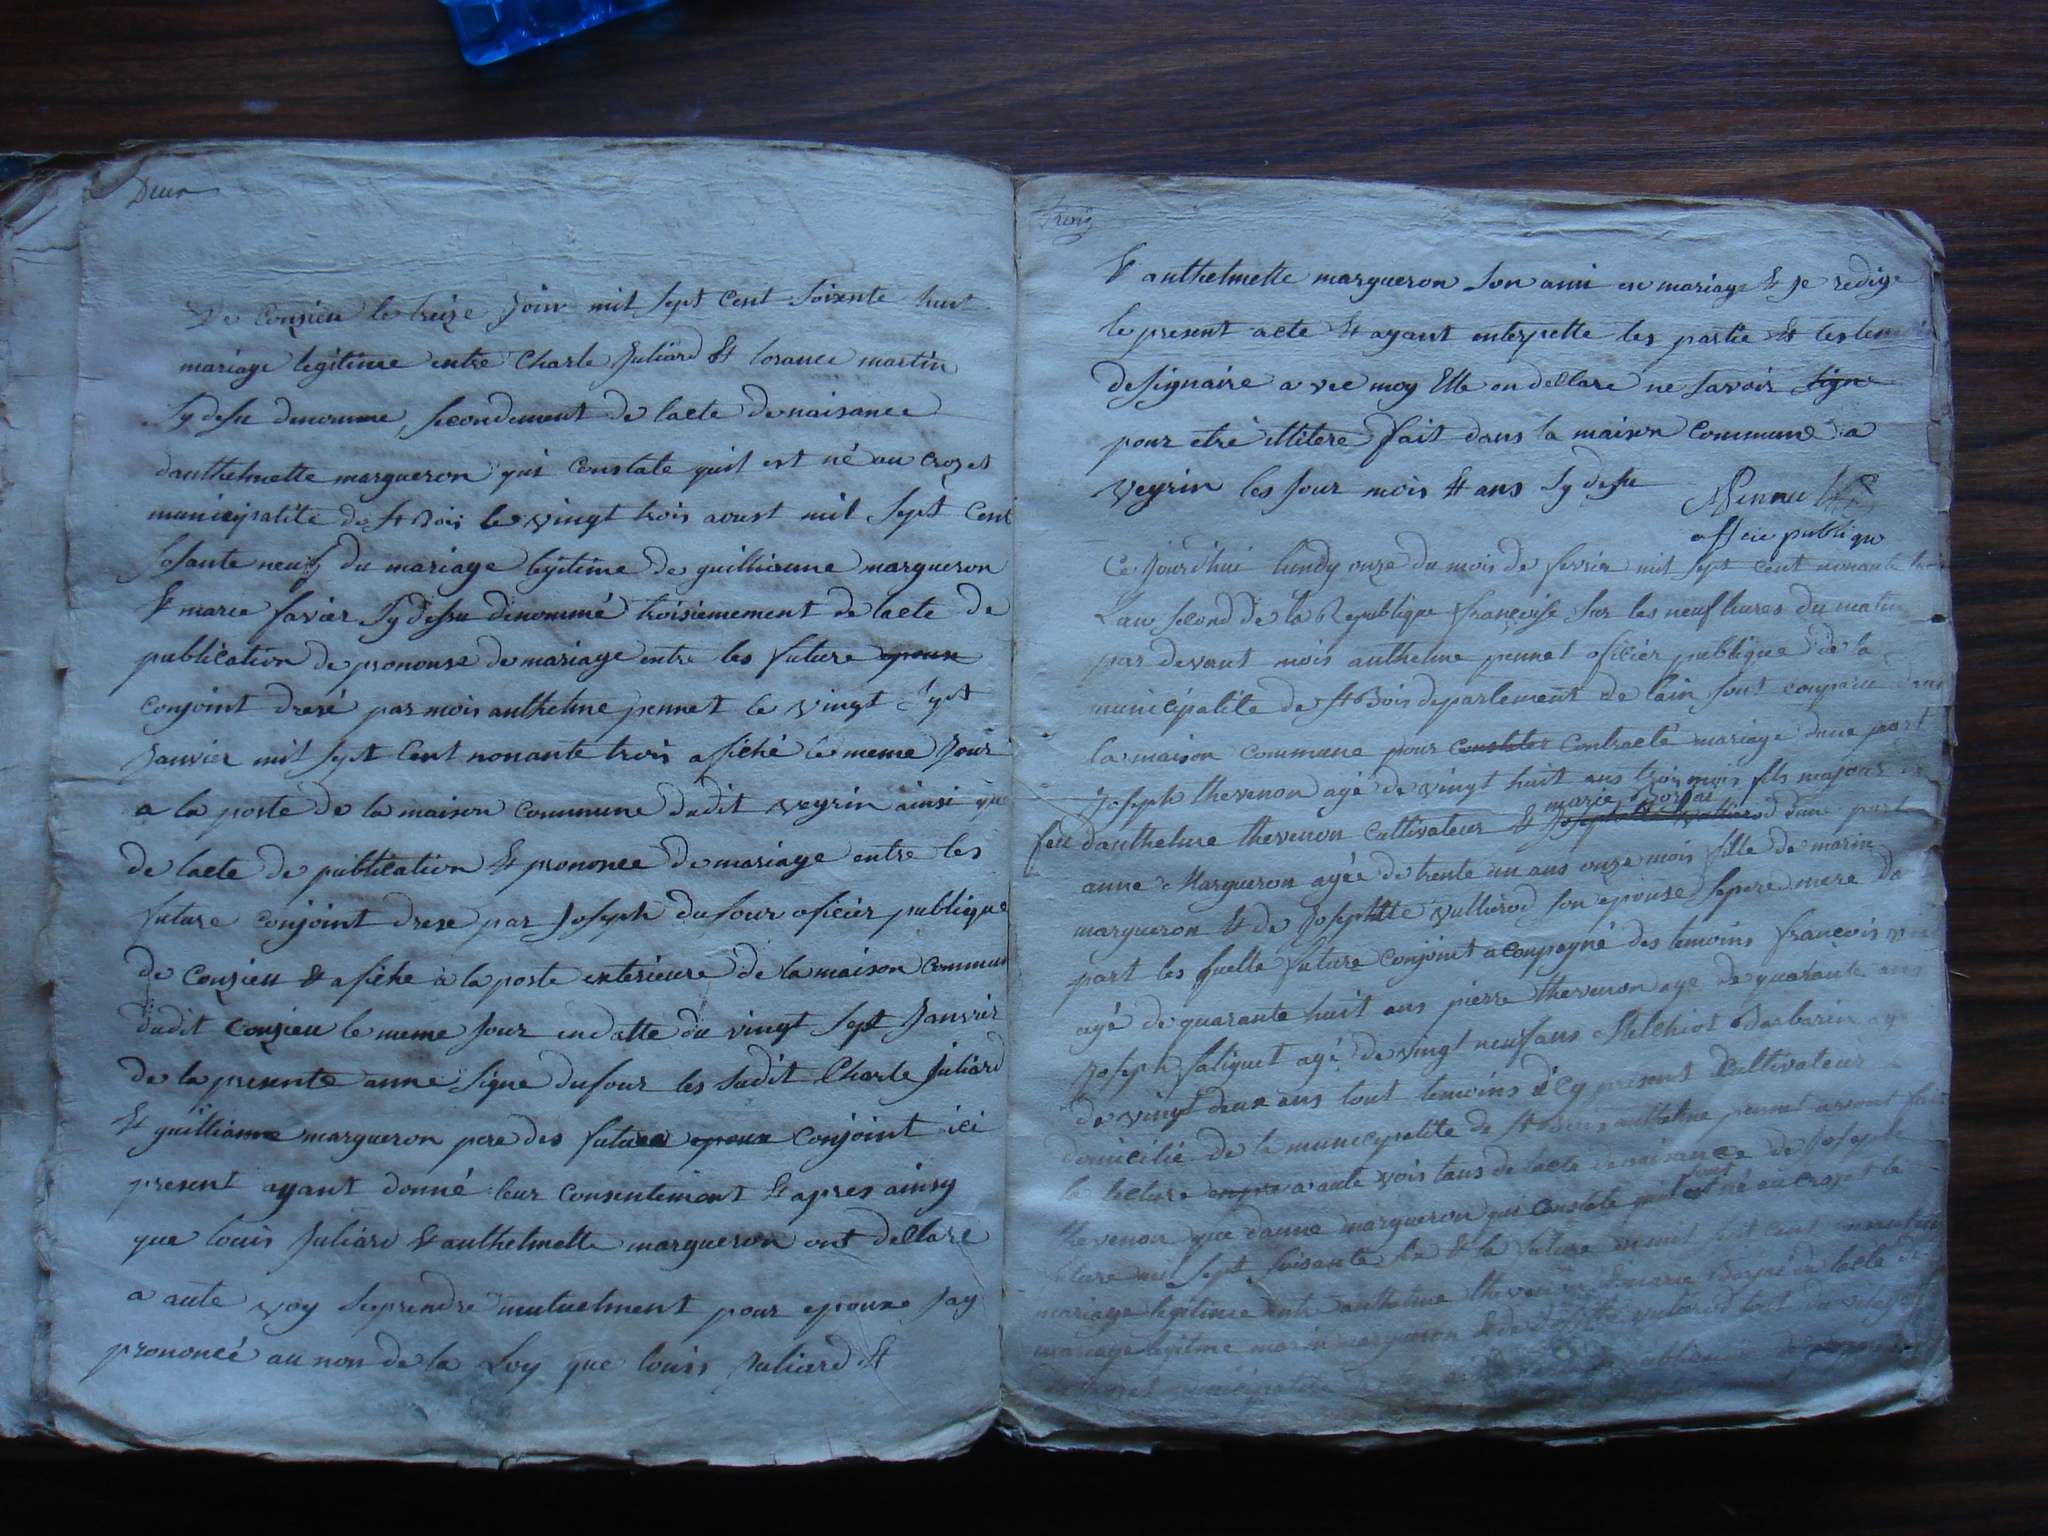 Deux
De Conzieu le treize Join mil sept cent soixente huit
mariage legitime entre Charle Juliard & lorance martin
sy desu denomme, secondement de lacte de naisance
danthelmette margueron qui constate quil est né au crozet
municipalite de St Bois le vingt trois aoust mil sept cent
sosante neuf du mariage legitime de guilliaume margueron
& marie favier sy desu denommé troisiemement de lacte de
publication de prononse de mariage entre les future epoux
conjoint dresé par mois anthelme pennet le vingt sept
Janvier mil sept cent nonante trois afiché le meme Jour
a la porte de la maison commune dudit veyrin ainsi que
de lacte de publication & prononce de mariage entre les
future conjoint drese par Joseph dufour oficier publique
de Conzieu & afiche a la porte exterieure de la maison commun
dudit Conzieu le meme Jour en datte du vingt sept Janvier
de la presente anne signe dufour les sudit Charle Juliard
& guilliaume margueron pere des future epoux conjoint ici
present ayant donné leur consentement & apres ainsy
que louis Juliard & anthelmette margueron ont dellare
a aute voy seprendre mutuelment pour epoux Jay
prononcé au non de la Loy que louis Juliard &
trois
& anthelmette margueron son uni en mariage & Je redige
le present acte & ayant interpette les partie & les
designaire a vec moy Elle on dellare ne savoir signe
pour etre illitere fait dans la maison commune a
veyrin les Jour mois & ans sy desu Pennet
oficie publique
Ce Jourdhui lundy onze du mois de fevrier mil sept cent nonante trois
Lan second de la Republique françoise sur les neuf heures du matin
par devant mois anthelme pennet oficier publique de la
municipalite de St Bois departement de lain sont conparu dans
la maison commune pour constater contracté mariage dune part
Joseph thevenon agé de vingt huit ans trois mois fils majour de
marie
feu danthelme thevenon cultivateur & Josephtte vullierod dune part
anne Margueron agée de trente un ans onze mois fille de marin
margueron & de Josephtte vullierod son epouse sepere mere da
part les quelle future conjoint acompagné des temoins francois
agé de quarante huit ans pierre thevenon age de quarante ans
Joseph saliquet agé de vingt neuf ans Melchiot Barbarin age
de vingt deux ans tout temoins icy present Cultivateur
domicilié de la municypalite de St Bois anthelme pennet
la lecture a aute vois tans de lacte de naisance de Joseph
sont
thevenon que danne margueron qui constate quil est né au crozet le
mil sept soisante & la future mil sept cent
mariage legitime entre anthelme thevenon & marie de lacte de
mariage legitime marin margueron & de vulierod tout du
municipalite